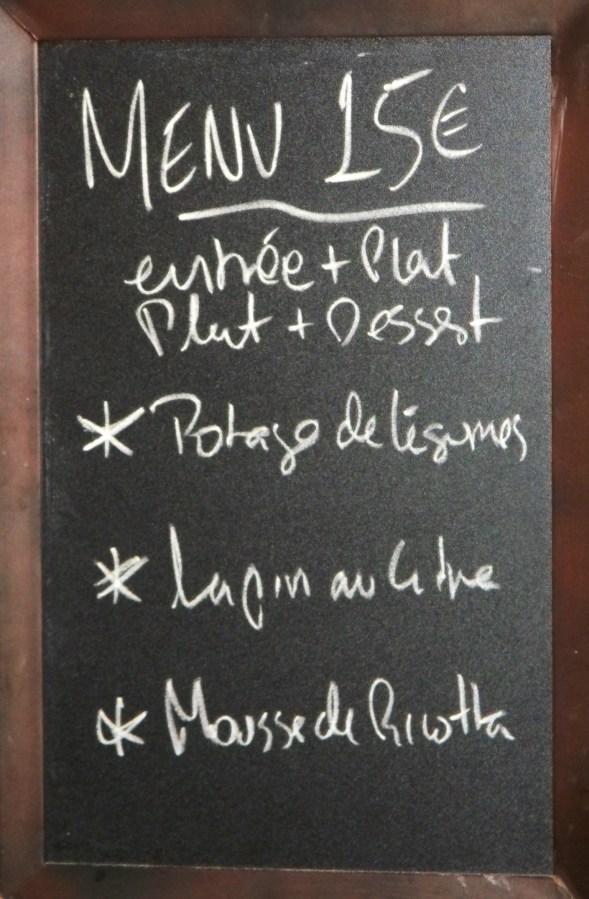 MENU 15€
entrée + Plat
Plat + Dessert
* Potage de légumes
* Lapin au Cidre
* Mousse de Ricotta